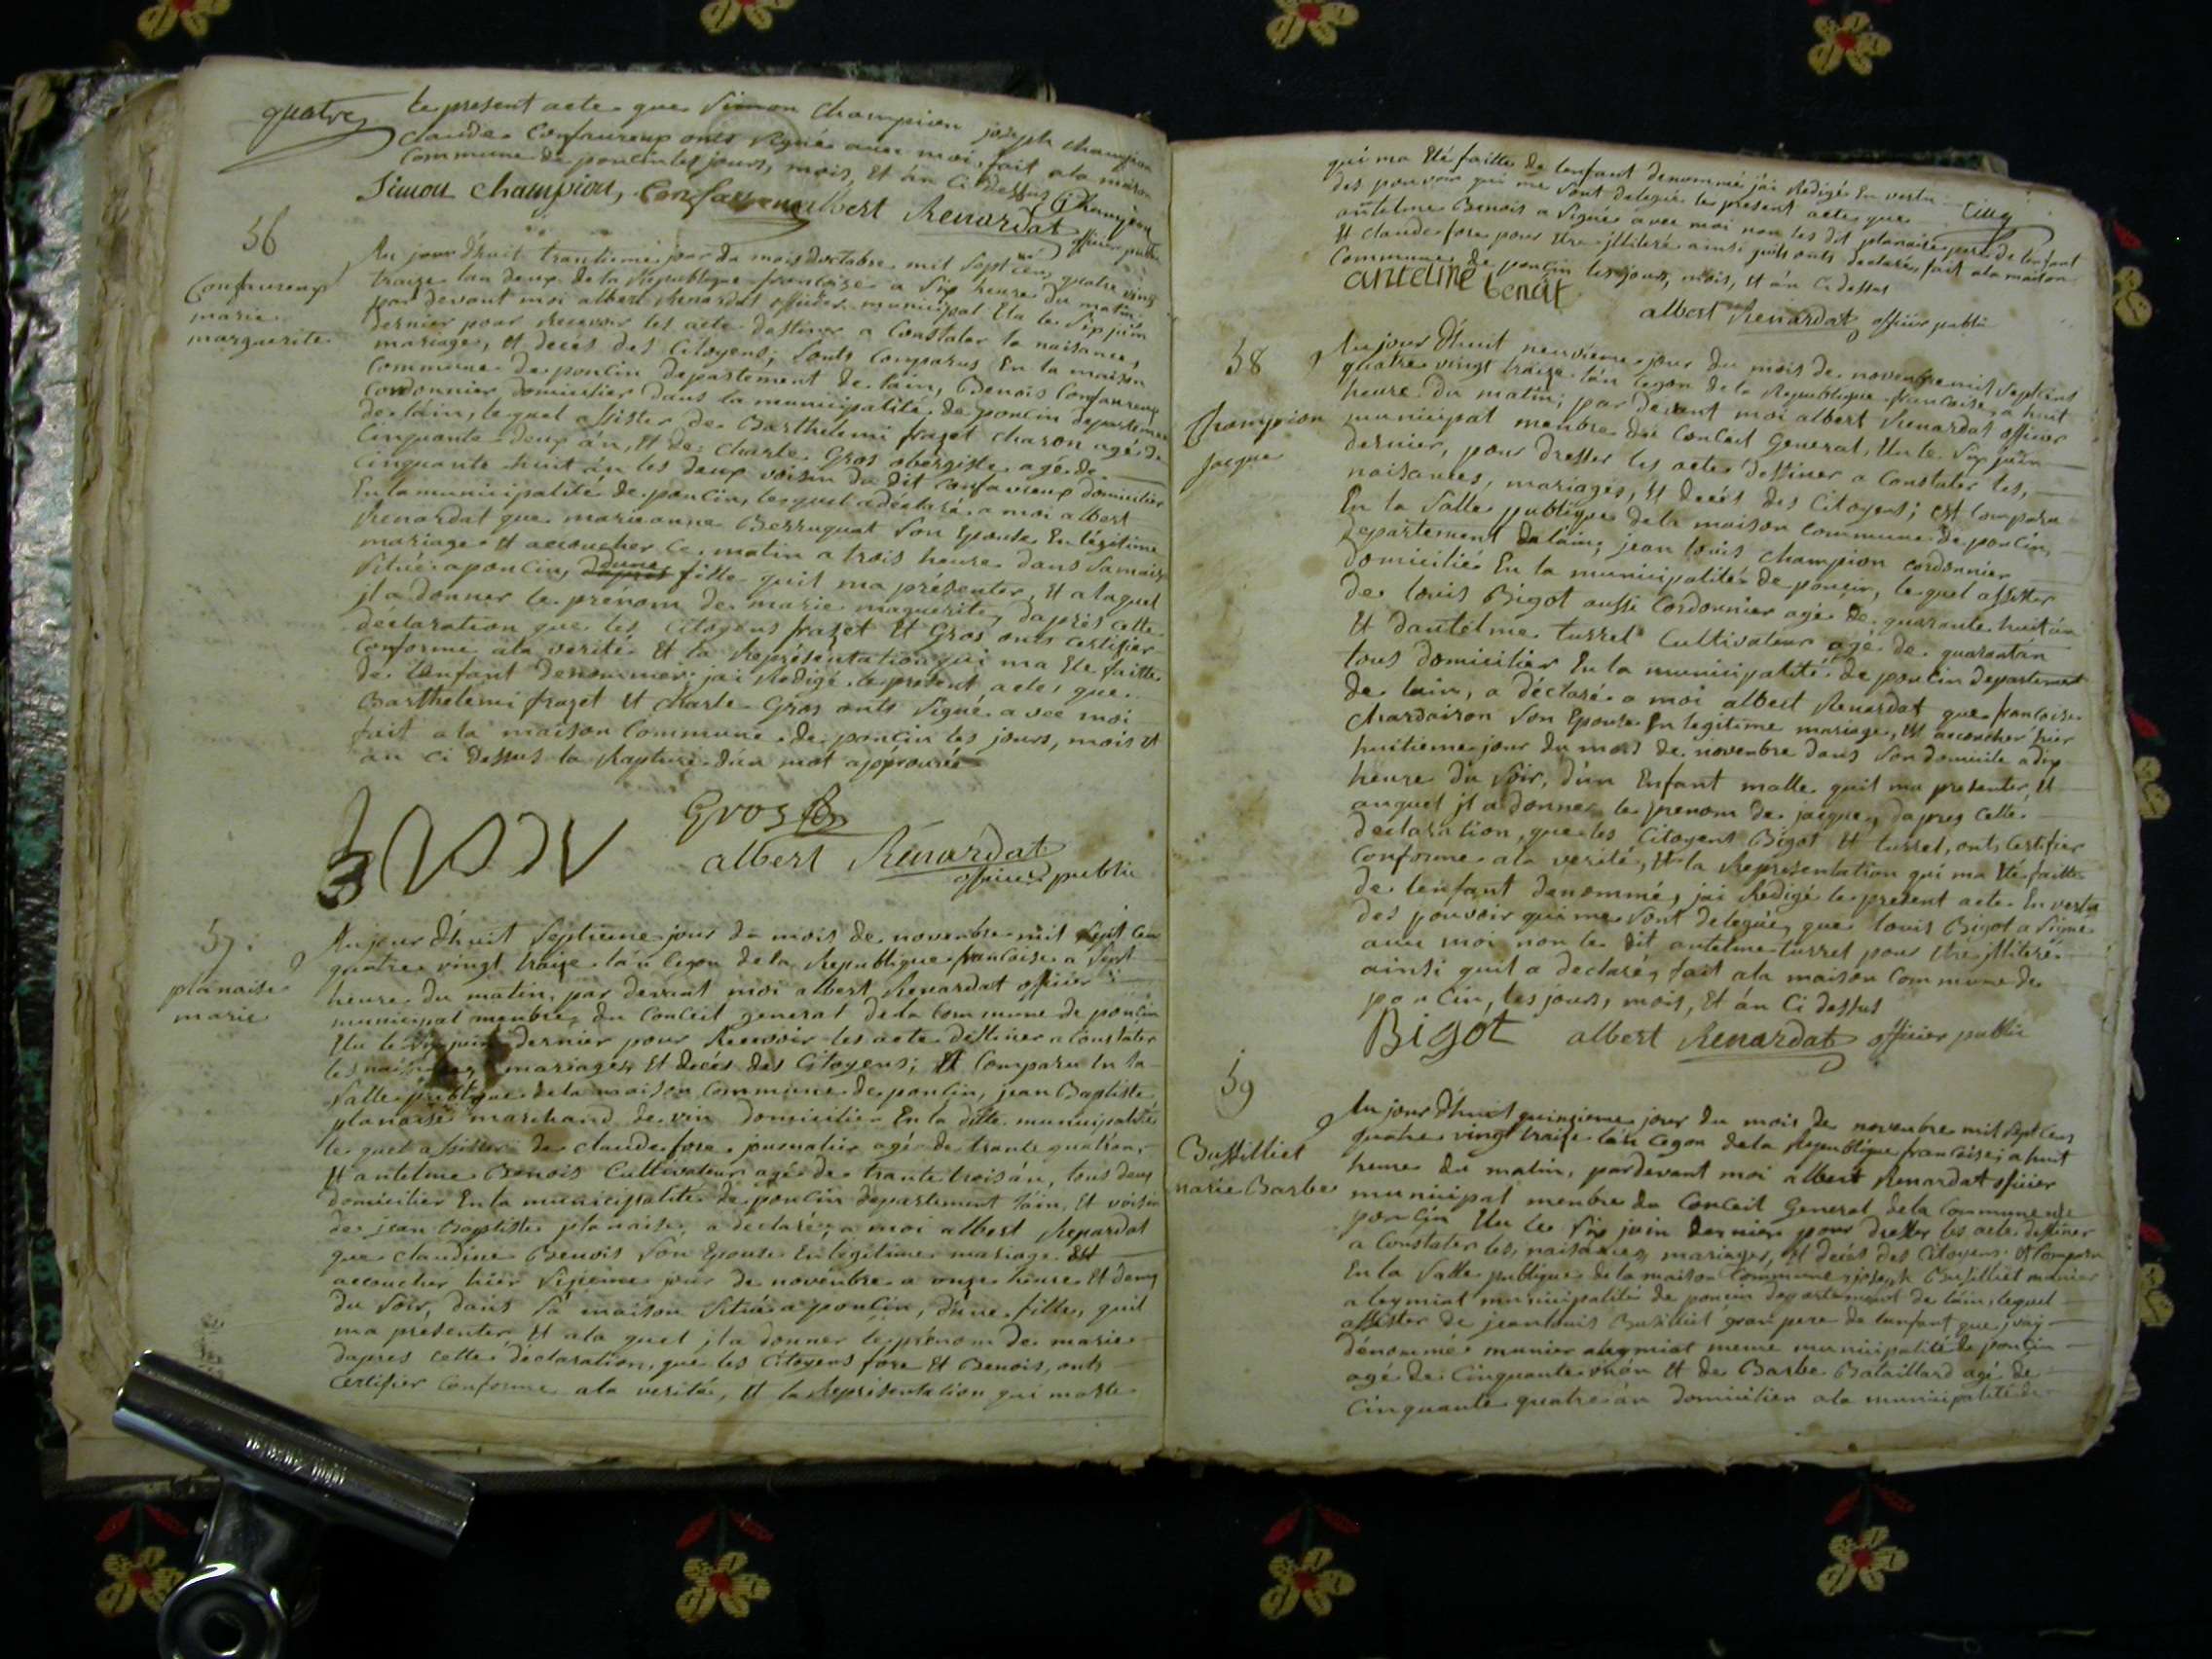 quatre
le present acte que Simon Champion joseph champion
claude Confavreux onts Signé avec moi, fait a la maison
Commune de poncin les jours, mois, Et án Ci dessus
Simon Champion, Confavreux albert Renardat J Champion
officier public
56
Confavreux
marie
marguerite
Au jour d'huit trantieme jour du mois doctobre mil Sept cen quatre ving
traize lan deux de la Republique francoise a Six heure du matin
par devant moi albert Renardat officier municipal Elu le Six juin
dernier pour Recevoir les acte destiner a Constater la naisance,
mariages, Et decés des Citoyens; Sonts Comparus En la maison
Commune de poncin departement de lain, Benois Confavreux
Cordonnier domicilier dans la municipalité de poncin departemen
de láin, lequel assister de Barthelemi frazet charon agé de
Cinquante deux án, Et de Charle Gros obergiste agé de
Cinquante huit án les deux voisin du dit Confavreux domicilier
En la municipalité de poncin, lequel a déclaré a moi albert
Renardat que marieanne Berruquat Son Epouse En légitime
mariage Et accoucher ce matin a trois heure dans Sa maison
Situé a poncin, dune fille quil ma présenter, Et a laquel
jl a donner le prénom de marie maguerite, dáprès cette
déclaration que les Citoyens frazet Et Gros onts certifier
Conforme ala vérité Et la Représentation qui ma Eté faitte
de lenfant denommer; jai Redigé le present acte, que
Barthelemi frazet Et charle Gros onts Signé avec moi
fait a la maison Commune de poncin les jours, mois Et
an Ci dessus la Rapture d'un mot approuvée
Gros
albert Renardat
officier public
57
planaise
marie
Au jour d'huit Septieme jour du mois de novembre mil Sept Cen
quatre vingt traize lán Cegon de la Republique francoise a Sept
heure du matin, par devant moi albert Renardat officier
municipal menbre du Conceit general de la Commune de poncin
Elu le Six juin dernier pour Recevoir les acte destiner a Constater
les naisances, mariages, Et decés des Citoyens; Et Comparu En la
Salle publique de la maison Commune de poncin, jean Baptiste
planaise marchand de vin domicilier En la ditte municipalité
le quel assister de claude fore journalier agé de trante quatre án,
Et antelme Benois Cultivateur agé de trante trois án, tous deux
domicilier En la municipalité de poncin departement láin, Et voisin
de jean Baptiste planaise, a declaré, a moi albert Renardat
que claudine Benois Són Epouse En légitime mariage Est
accoucher hier Sizieme jour de novembre a onze heure Et demy
du Soir, dans Sá maison Situé a poncin, d'une fille, quil
ma présenter, Et ala quel jl a donner le prénom de marie
dapres cette déclaration, que les Citoyens fore Et Benois, onts
Certifier Conforme ala verité, Et la Representation qui ma Eté
qui ma Eté faitte de lenfant denommé jái Redigé En vertu
Cinq
des pouvoir qui me Sont delegué le present acte que
antelme Benois a Signé avec moi non les dit planaise pere de lenfant
Et claude fore pour Etre jlliteré ainsi quils onts declaré, fait ala maison
Commune de poncin les jours, mois, Et án Ci dessus
antelme benoit
albert Renardat officier public
58
Champion
jacque
Au jour d'huit neuvieme jour du mois de novembre mil Sept cens
quatre vingt traize lán Cegon de la Republique francaise, a huit
heure du matin; par devant moi albert Renardat officier
municipal menbre du Conceit General, Elu le Six juin
dernier, pour dresser les acte destiner a Constater les,
naisances, mariages, Et decés des Citoyens; est Comparu
En la Salle publique de la maison commune de poncin,
departement de láin; jean louis Champion cordonnier
domicilié En la municipalité de poncin, lequel assister
de louis Bigot aussi Cordonnier agé de quarante huit án
Et dantelme turrel Cultivateur agé de quarantán
tous domicilier En la municipalité de poncin departement
de lain, a déclaré a moi albert Renardat que francoise
Chardairon Son Epouse En legitime mariage, Est accoucher hier
huitieme jour du mois de novembre dans Son domicile a dix
heure du Soir, d'un Enfant malle quil ma presenter, Et
auquel jl a donner le prenom de jacque, dapres cette
declaration, que les Citoyens Bigot Et turrel, ont, certifier
Conforme ala verité, Et la Représentation qui ma Eté faitte
de lenfant denommé, jai Redigé le present acte En vertu
des pouvoir qui me Sont delegué, que louis Bigot a Signe
avec moi non le dit antelme turrel pour Etre jlliteré
ainsi quil a declaré, fait ala maison Commune de
poncin, les jours, mois, Et án Ci dessus
Bigot albert Renardat officier public
59
Bussilliet
marie Barbe
Au jour d'huit quinzieme jour du mois de novembre mil Sept Cens
quatre vingt traize lán Cegon de la Republique francaise; a huit
heure du matin, par devant moi albert Renardat officier
municipal menbre du Conceit General de la Commune de
poncin Elu le Six juin dernier pour dresser les acte destiner
a Constater les, naisances, mariages, Et decés des Citoyens. Est Comparu
En la Salle publique de la maison Commune, joseph Busilliet munier
a leymiat municipalité de poncin departement de láin, lequel
assister de jean louis Busilliet gran pere de lenfant que
dénommé munier a leymiat meme municipalité de poncin
agé de Cinquante án Et de Barbe Bataillard agé de
Cinquante quatre án domicilier ala municipalité de